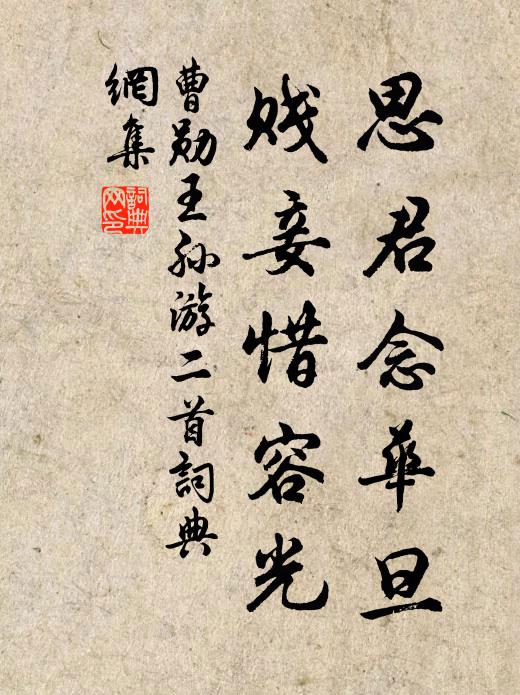 思君念華旦
賤妾惜容光
曹勛王孙游二首詞典
網集
詞典网印